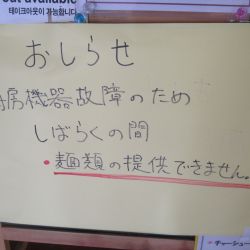 out available
테이크아웃이 가능합니다
おしらせ
房機器故障のため
しばらくの間
・麺類の提供できません。
チャーシュー